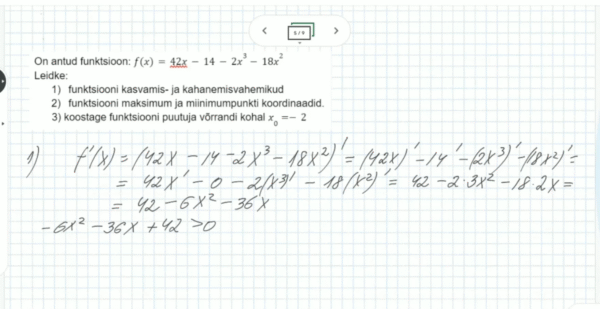 5 / 9
On antud funktsioon: f(x) = 42x − 14 − 2x³ − 18x²
Leidke:
1) funktsiooni kasvamis- ja kahanemisvahemikud
2) funktsiooni maksimum ja miinimumpunkti koordinaadid.
3) koostage funktsiooni puutuja võrrandi kohal x₀ = − 2
1) f'(x) = (42x − 14 − 2x³ − 18x²)' = (42x)' − 14' − (2x³)' − (18x²)' =
= 42x' − 0 − 2(x³)' − 18(x²)' = 42 − 2·3x² − 18·2x =
= 42 − 6x² − 36x
−6x² − 36x + 42 > 0